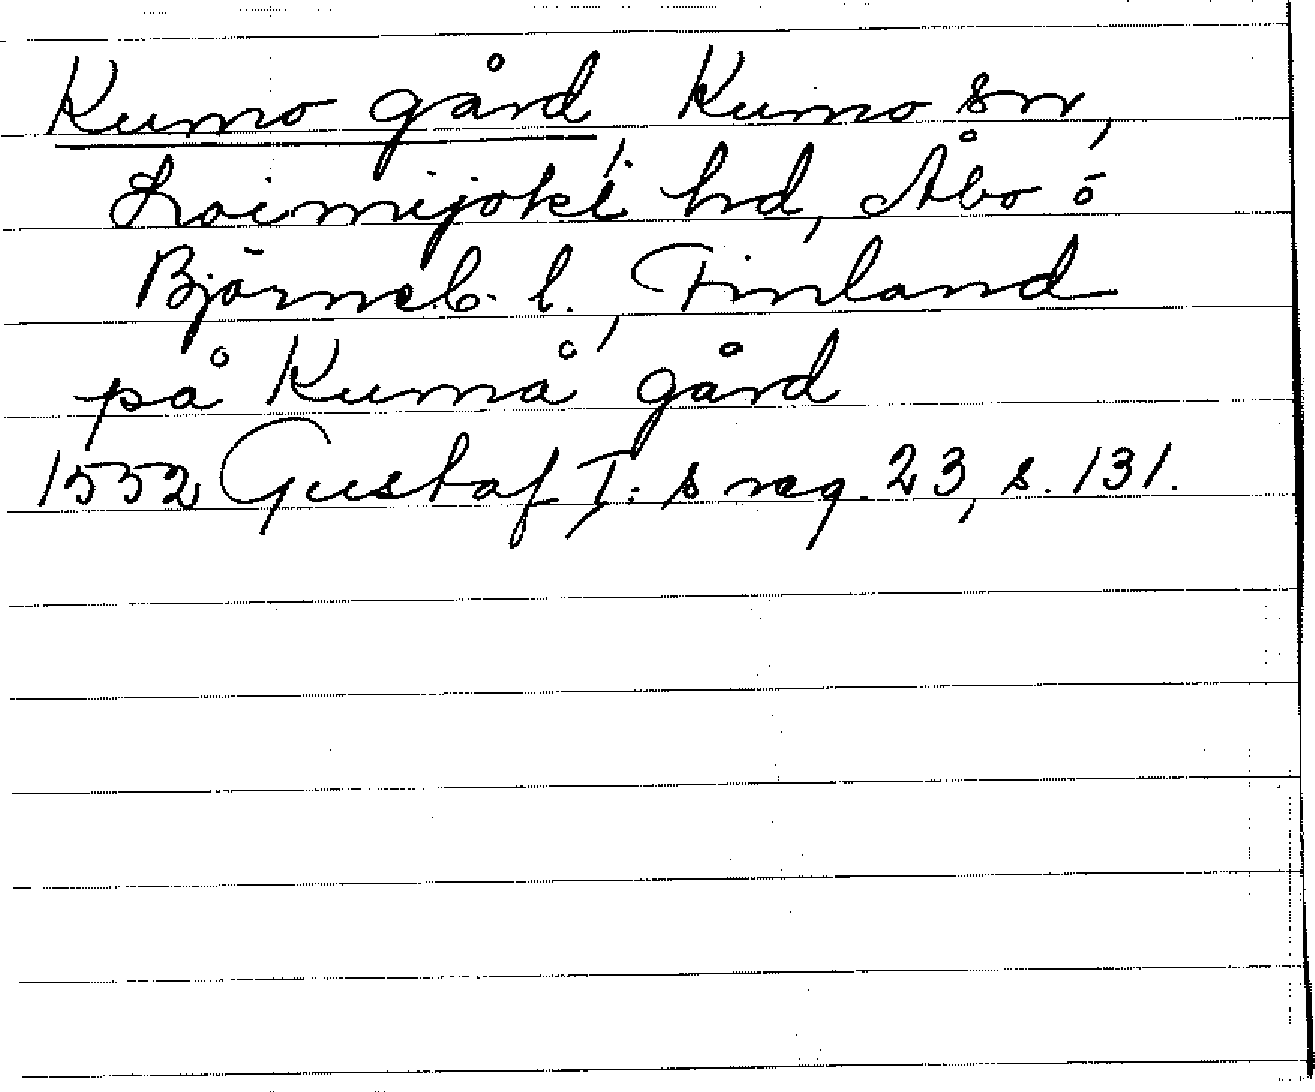 Kumo gård, Kumo sn,
Loimijoki hd, Åbo ö
Björneb. l., Finland
på Kumå gård
1552 Gustaf I:s reg. 23, s. 131.